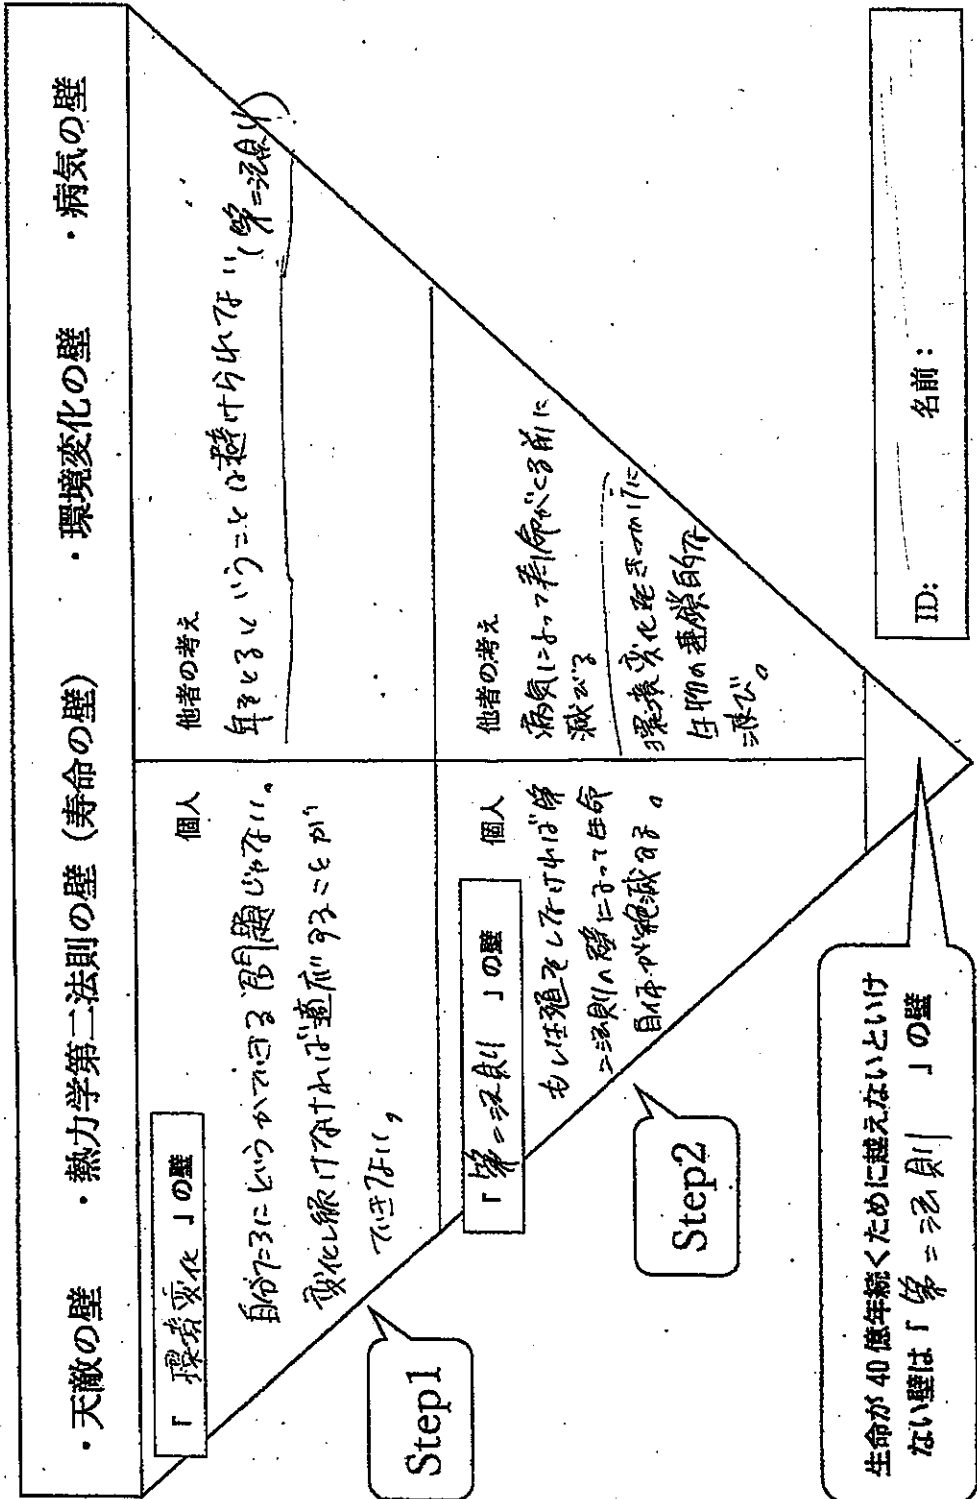 ・天敵の壁　・熱力学第二法則の壁（寿命の壁）　・環境変化の壁　・病気の壁
「環境変化」の壁
個人
自分たちにどうかできる問題じゃない。
変化し続けなければ適応することが
できない。
他者の考え
年をとるということは避けられない(第二法則)
Step1
「第二法則」の壁
個人
もし生殖をしなければ第
二法則の壁によって生命
自体が絶滅する。
他者の考え
病気によって寿命がくる前に
滅びる
環境変化をきっかけに
生物の連鎖的な
滅び。
Step2
生命が40億年続くために越えないといけ
ない壁は「第二法則」の壁
ID:
名前：